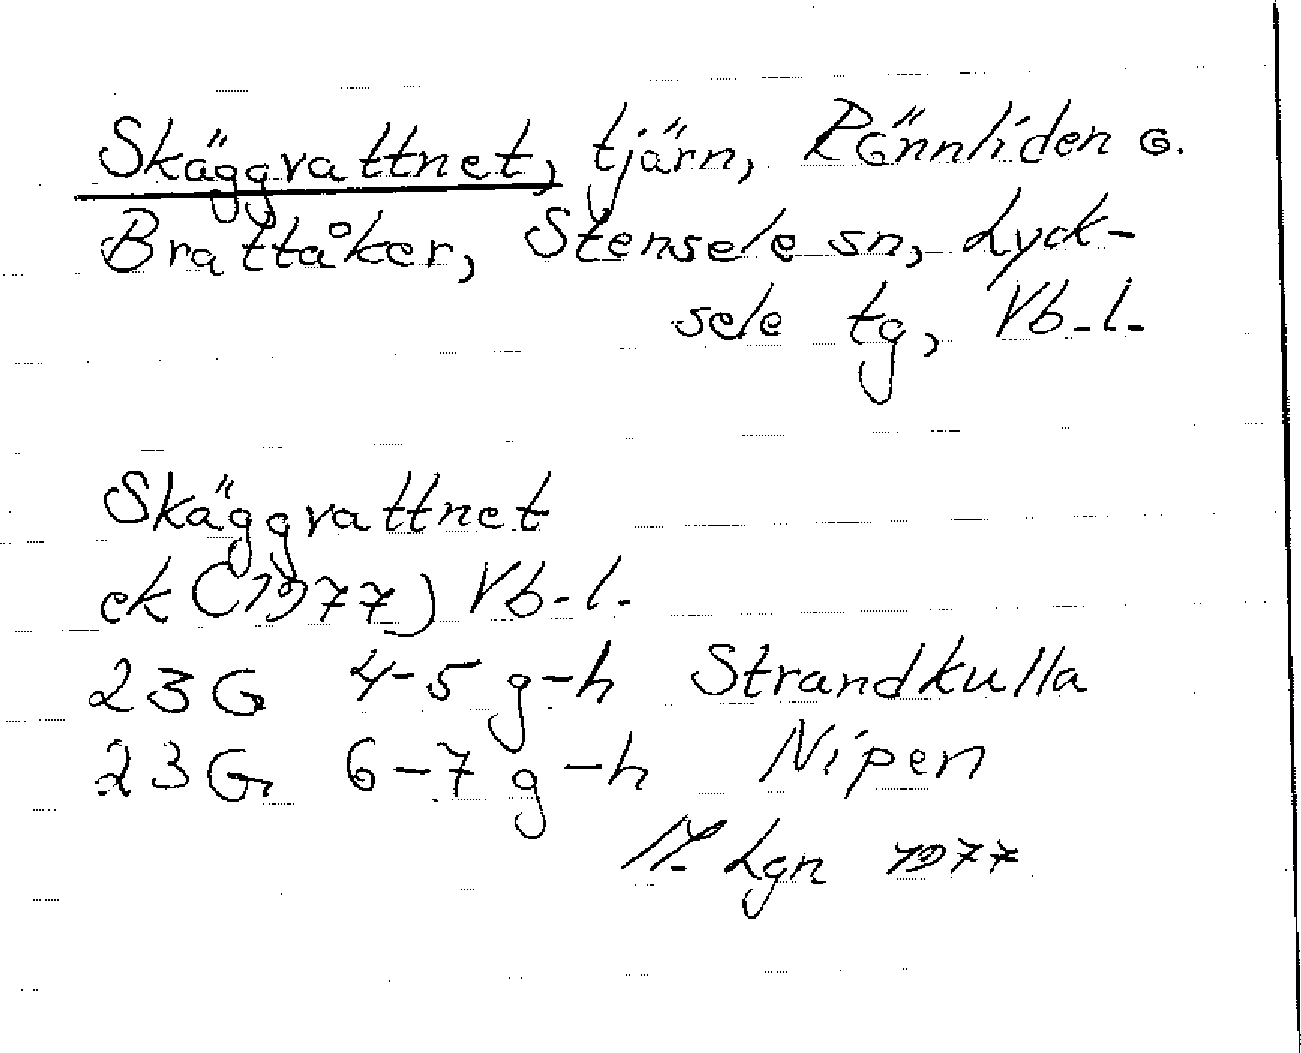 Skäggvattnet, tjärn, Rönnliden o.
Brattåker, Stensele sn, Lyck-
sele tg, Vb-l.
Skäggvattnet
ek (1977) Vb-l.
23G 4-5 g-h Strandkulla
23G 6-7 g-h Nipen
M. Lgn 1977